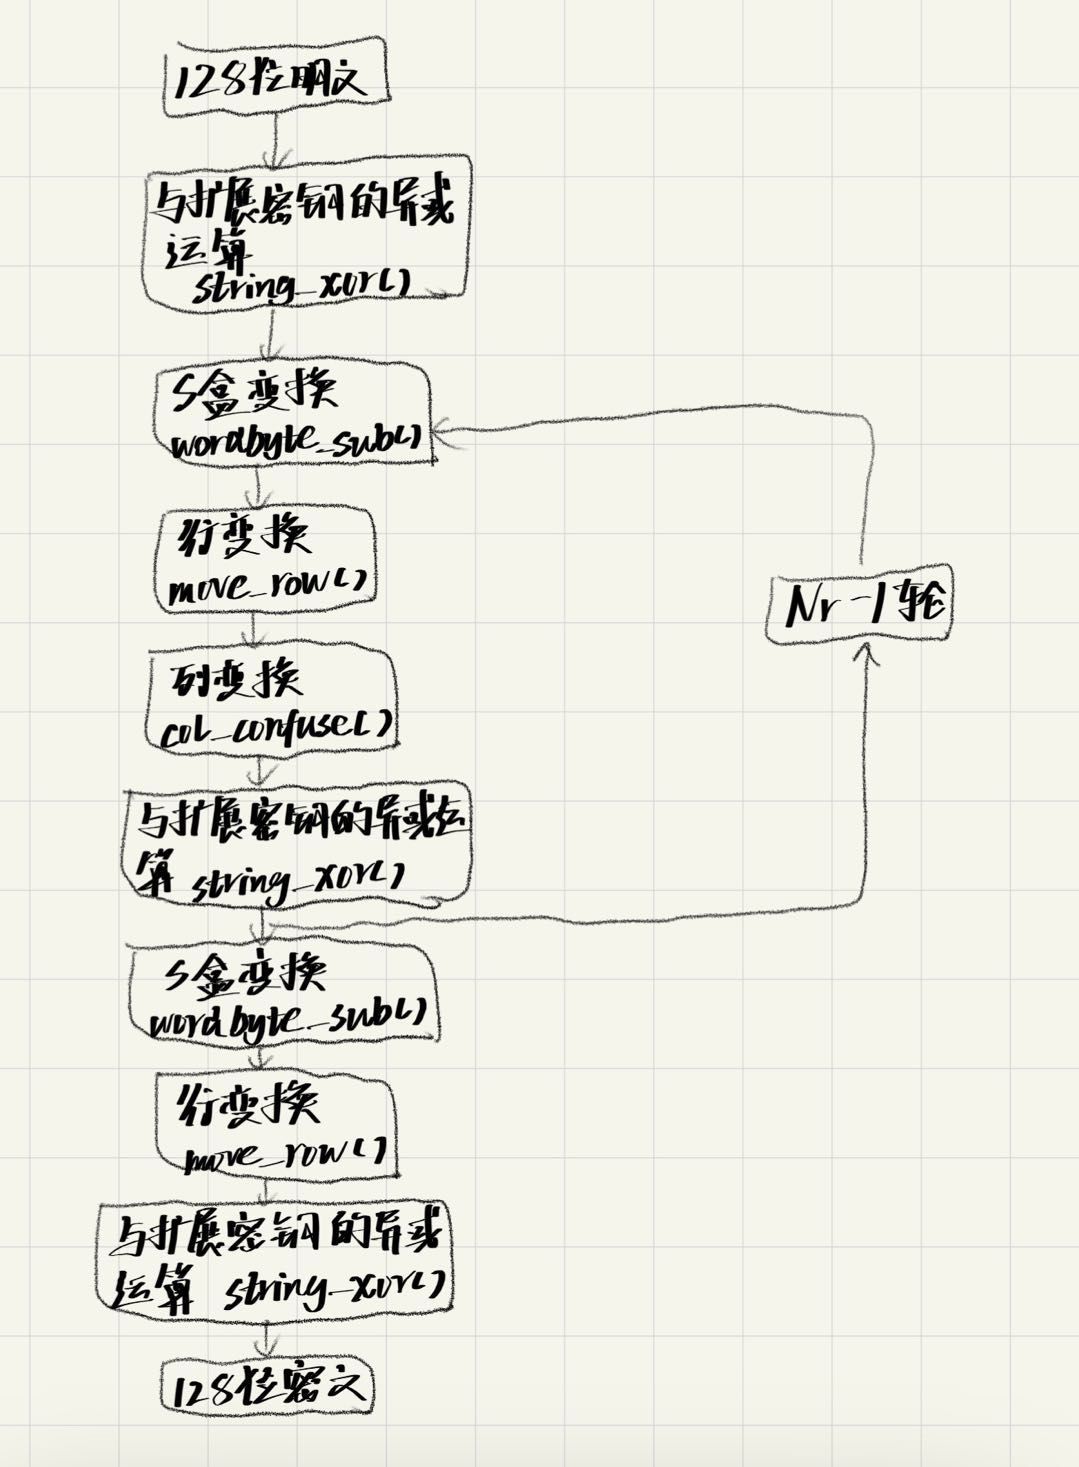 128位明文
与扩展密钥的异或
运算
string_xor()
S盒变换
wordbyte_sub()
行变换
move_row()
列变换
col_confuse()
与扩展密钥的异或运
算 string_xor()
S盒变换
wordbyte_sub()
行变换
move_row()
与扩展密钥的异或
运算 string_xor()
128位密文
Nr-1轮